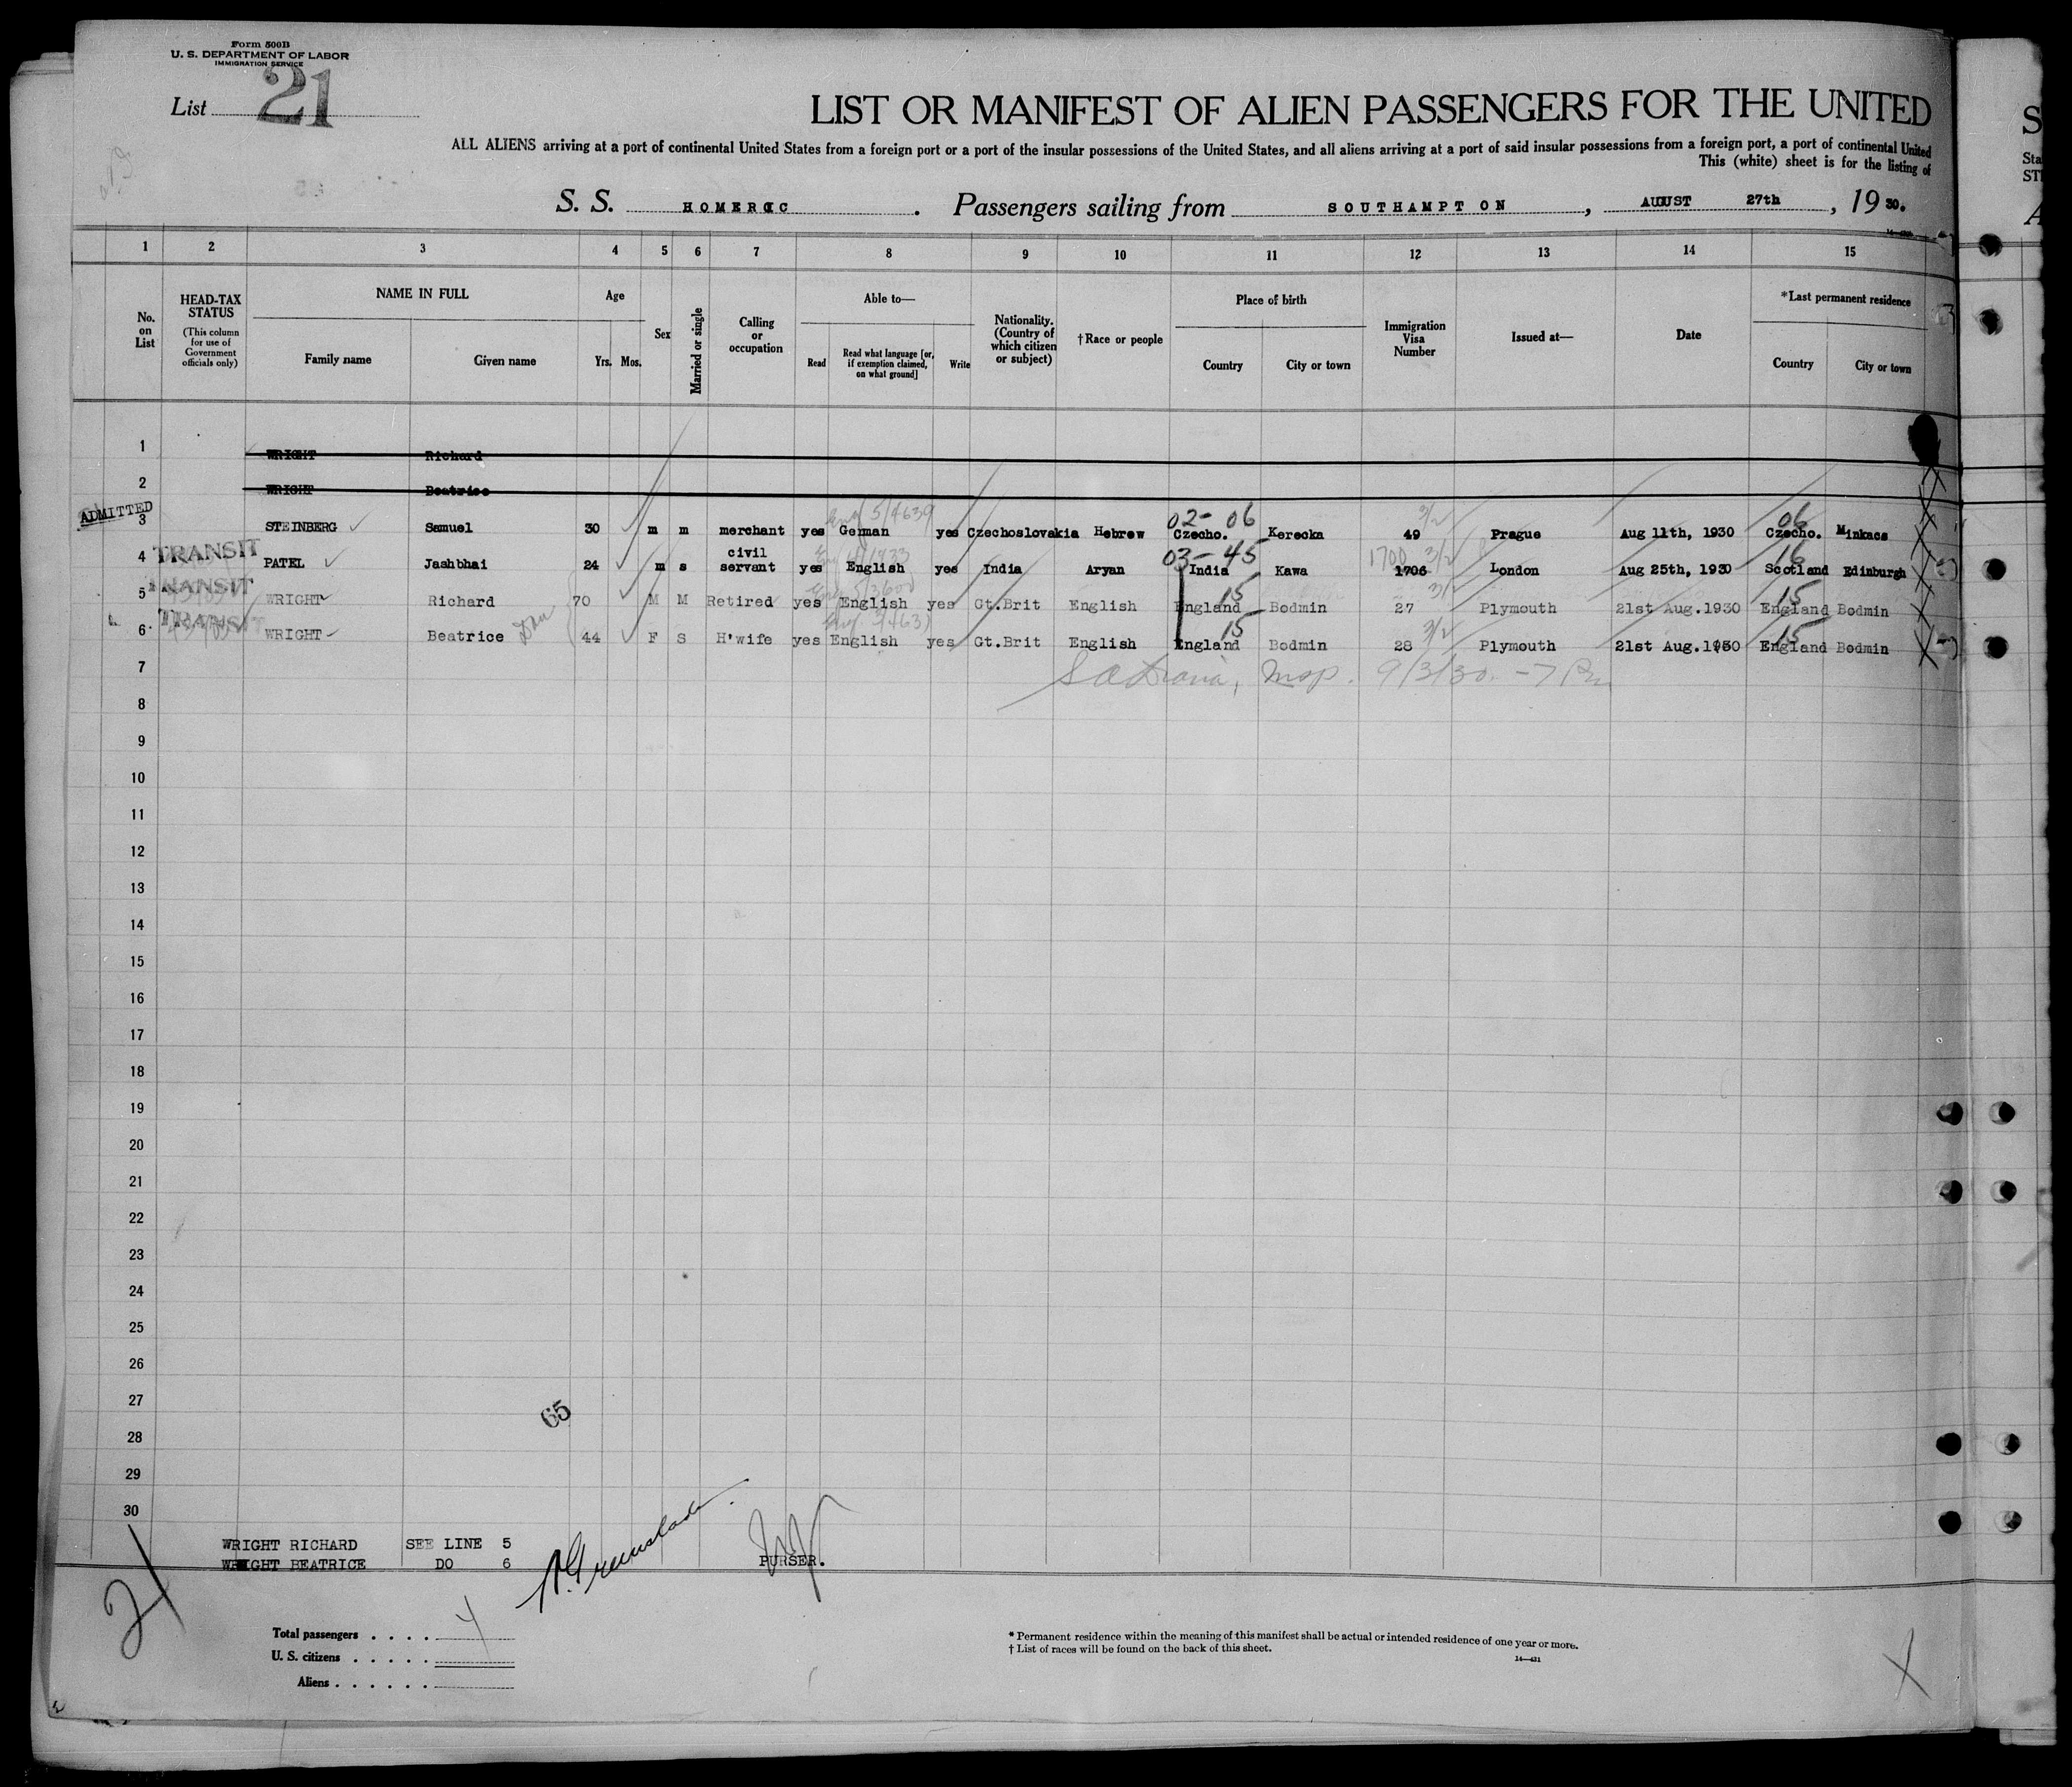 Form 500B
U. S. DEPARTMENT OF LABOR
IMMIGRATION SERVICE
List 21
LIST OR MANIFEST OF ALIEN PASSENGERS FOR THE UNITED
ALL ALIENS arriving at a port of continental United States from a foreign port or a port of the insular possessions of the United States, and all aliens arriving at a port of said insular possessions from a foreign port, a port of continental United
This (white) sheet is for the listing of
S. S. HOMERIC. Passengers sailing from SOUTHAMPTON, AUUST 27th, 1930.
1 2 3 4 5 6 7 8 9 10 11 12 13 14 15
No. on List
HEAD-TAX STATUS (This column for use of Government officials only)
NAME IN FULL
Family name Given name
Age
Yrs. Mos.
Sex
Married or single
Calling or occupation
Able to—
Read Read what language [or, if exemption claimed, on what ground] Write
Nationality. (Country of which citizen or subject)
†Race or people
Place of birth
Country City or town
Immigration Visa Number
Issued at—
Date
*Last permanent residence
Country City or town
1 WRIGHT Richard
2 WRIGHT Beatrice
ADMITTED
02- 06 06
3 STEINBERG Samuel 30 m m merchant yes German yes Czechoslovakia Hebrew Czecho. Kerecka 49 Prague Aug 11th, 1930 Czecho. Minkacs
TRANSIT
03-45 1700 3/2 16
4 PATEL Jashbhai 24 m s civil servant yes English yes India Aryan India Kawa 1706 London Aug 25th, 1930 Scotland Edinburgh
TRANSIT
15 3/2 15
5 WRIGHT Richard 70 M M Retired yes English yes Gt.Brit English England Bodmin 27 Plymouth 21st Aug.1930 England Bodmin
TRANSIT
15 3/2 15
6 WRIGHT Beatrice 44 F S H'wife yes English yes Gt.Brit English England Bodmin 28 Plymouth 21st Aug.1930 England Bodmin
7 Insp. 9/3/30 - 7
8
9
10
11
12
13
14
15
16
17
18
19
20
21
22
23
24
25
26
27
65
28
29
30
WRIGHT RICHARD SEE LINE 5
WRIGHT BEATRICE DO 6
PURSER.
21
Total passengers . . . . 4
U. S. citizens . . . . .
Aliens . . . . . .
* Permanent residence within the meaning of this manifest shall be actual or intended residence of one year or more.
† List of races will be found on the back of this sheet.
14—431